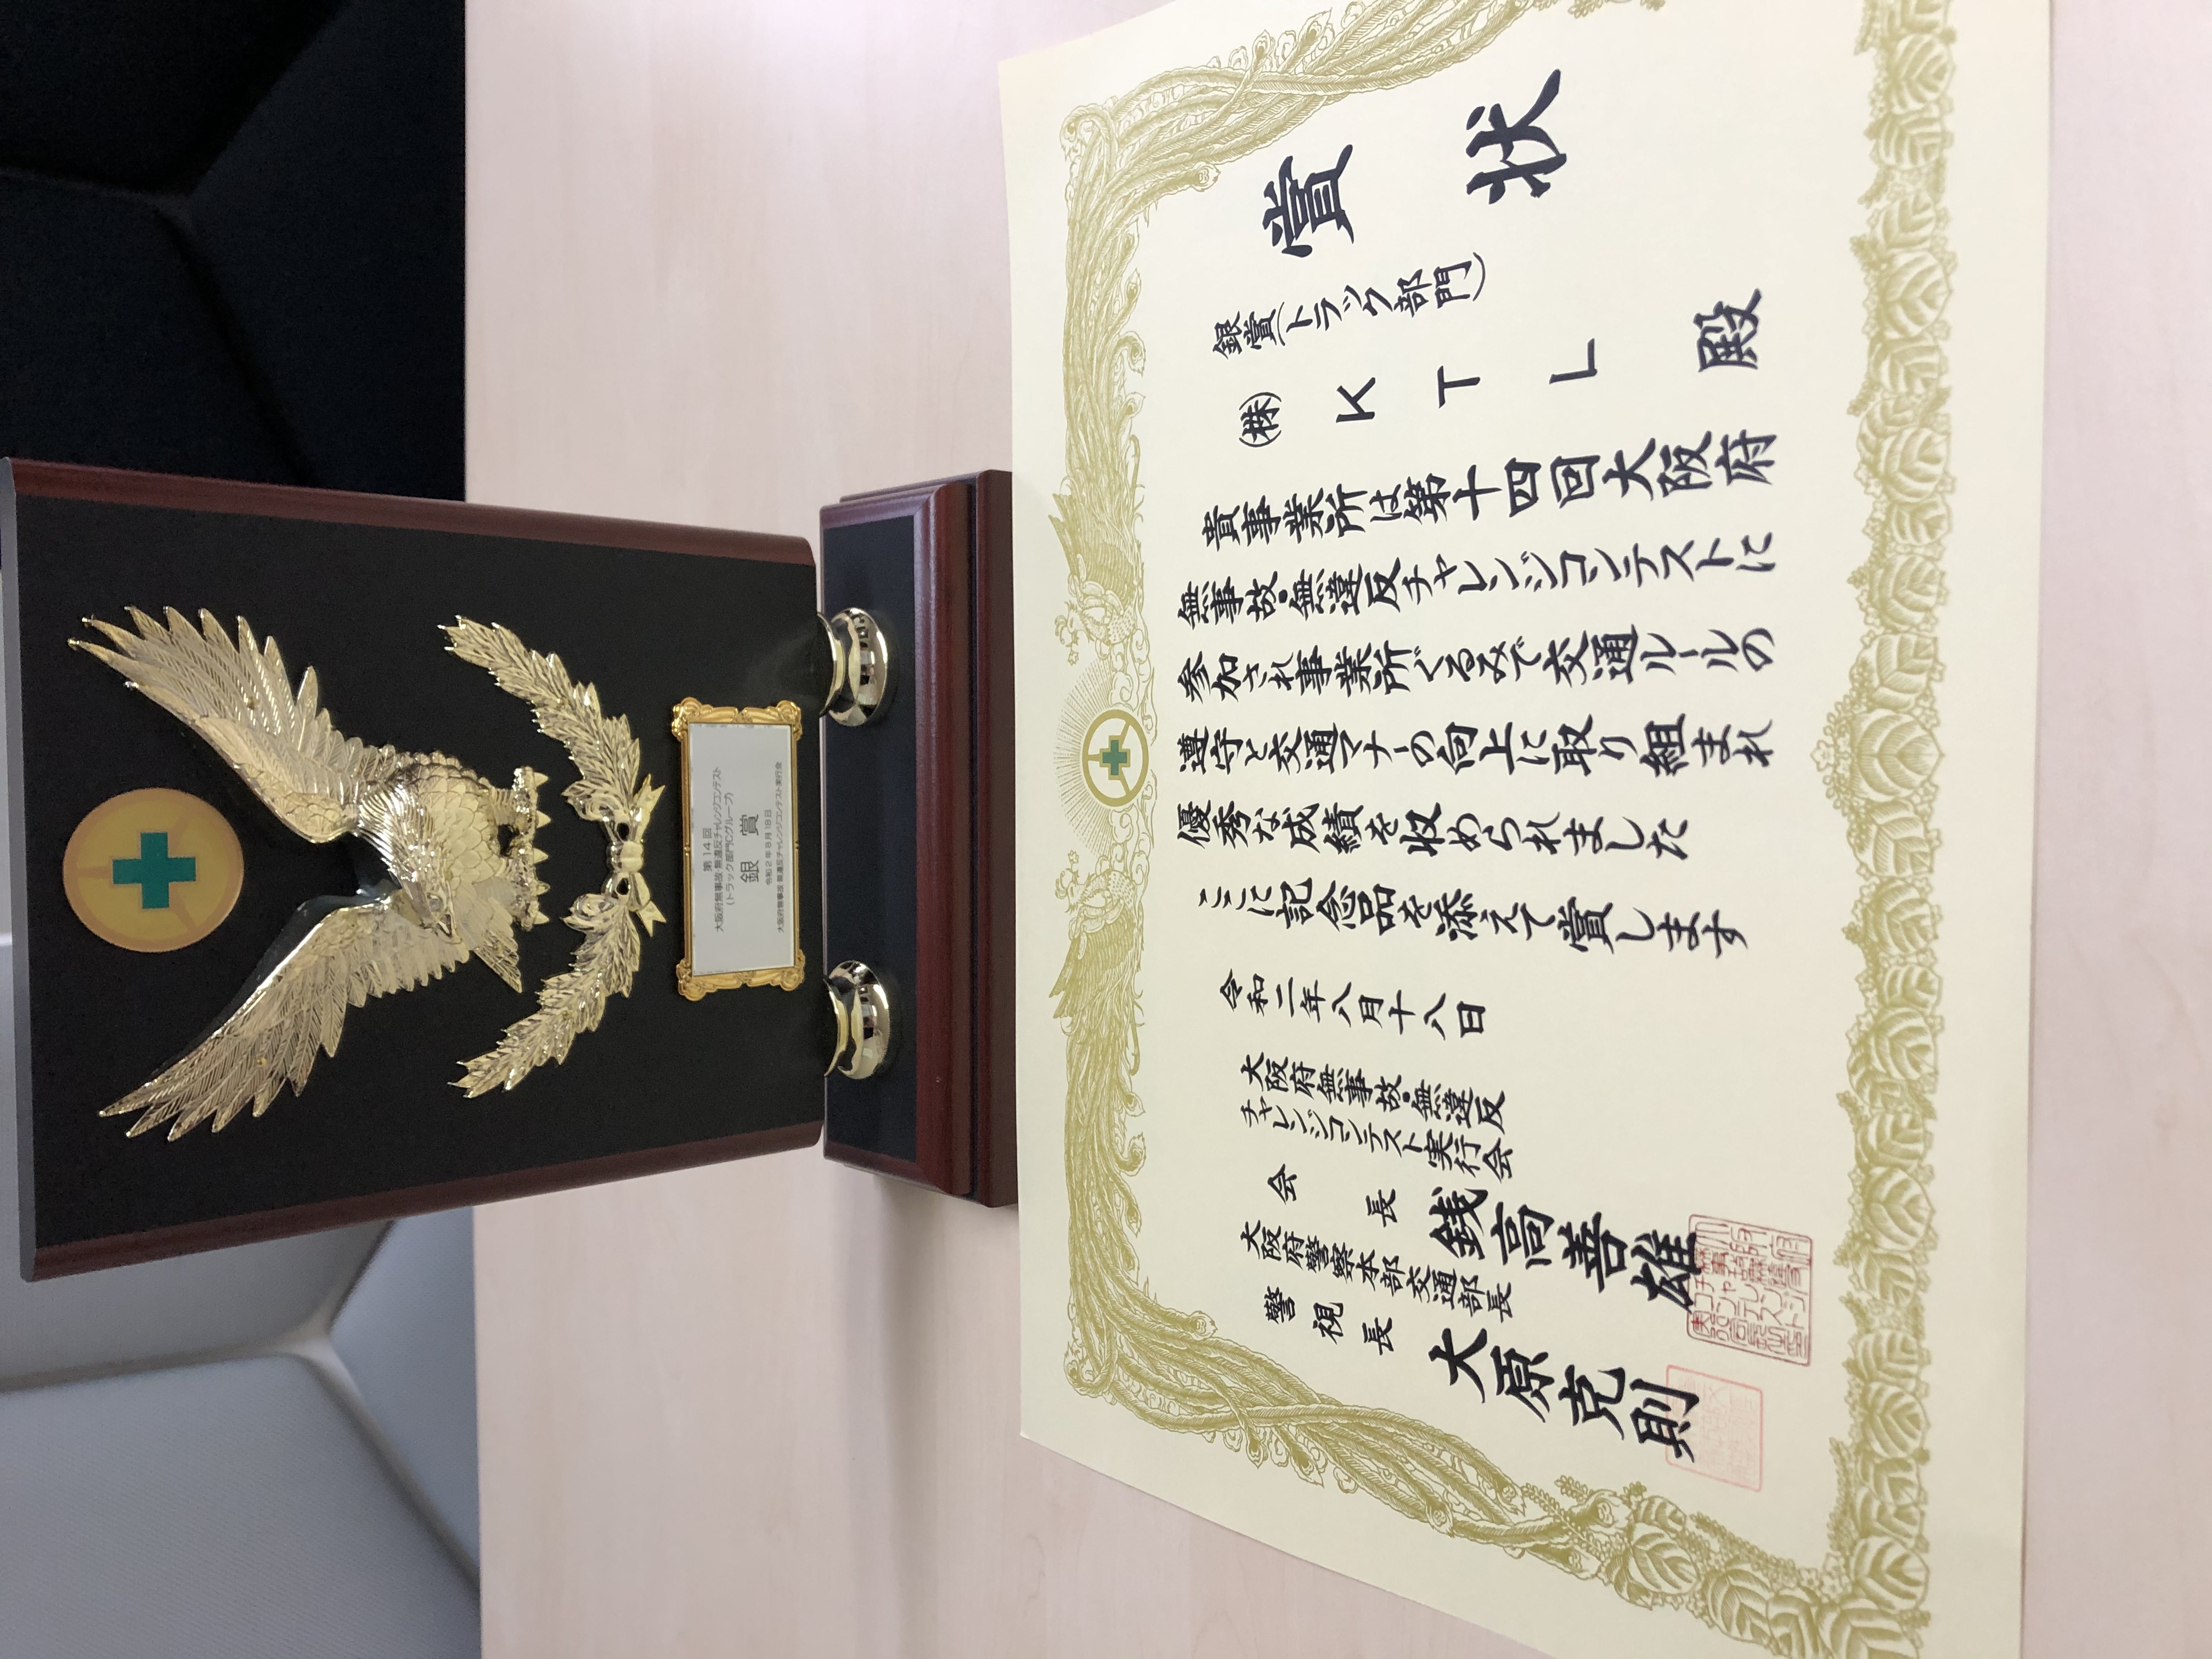 第14回
大阪府無事故・無違反チャレンジコンテスト
(トラック部門Cグループ)
銀賞
令和2年8月18日
大阪府無事故・無違反チャレンジコンテスト実行会
賞状
銀賞(トラック部門)
㈱KTL殿
貴事業所は第十四回大阪府
無事故・無違反チャレンジコンテストに
参加され事業所ぐるみで交通ルールの
遵守と交通マナーの向上に取り組まれ
優秀な成績を収められました
ここに記念品を添えて賞します
令和二年八月十八日
大阪府無事故・無違反
チャレンジコンテスト実行会
会長 銭高善雄
大阪府警察本部交通部長
警視長 大原克則